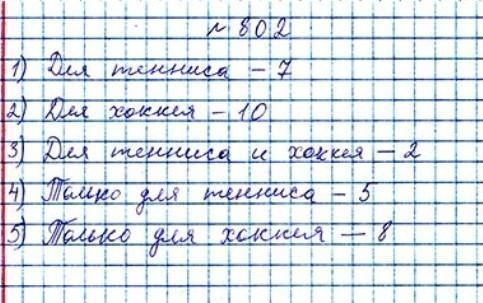 № 802
1) Для тенниса – 7
2) Для хоккея – 10
3) Для тенниса и хоккея – 2
4) Только для тенниса – 5
5) Только для хоккея – 8